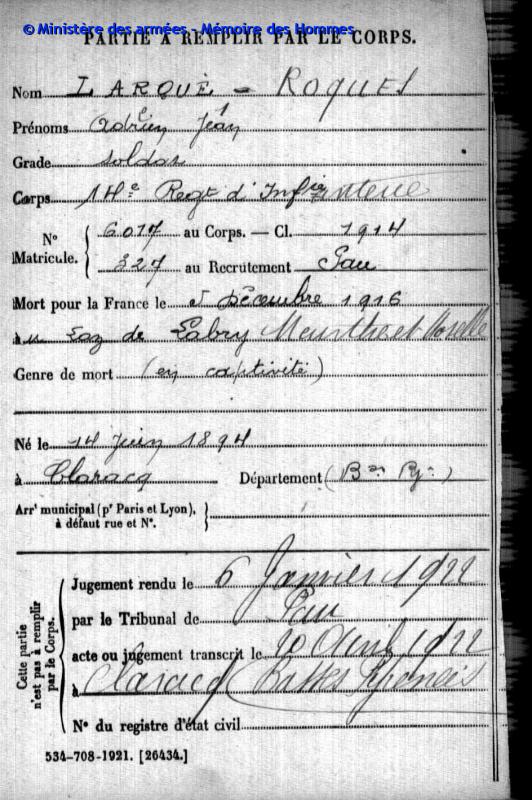 © Ministère des armées - Mémoire des Hommes
PARTIE À REMPLIR PAR LE CORPS.
Nom LARQUÈ - ROQUES
Prénoms Adrien Jean
Grade soldat
Corps 14e Regt d'Infanterie
N° Matricule. { 6017 au Corps. — Cl. 1914
327 au Recrutement Pau
Mort pour la France le 5 Décembre 1916
à Laz de Labry Meurthe et Moselle
Genre de mort (en captivité)
Né le 14 Juin 1894
à Claracq Département (Bses Pys)
Arrt municipal (pr Paris et Lyon), à défaut rue et N°. }
Cette partie n'est pas à remplir par le Corps.
Jugement rendu le 6 Janvier 1922
par le Tribunal de Pau
acte ou jugement transcrit le 20 Avril 1922
à Claracq (Basses Pyrénées
N° du registre d'état civil
534-708-1921. [26434.]